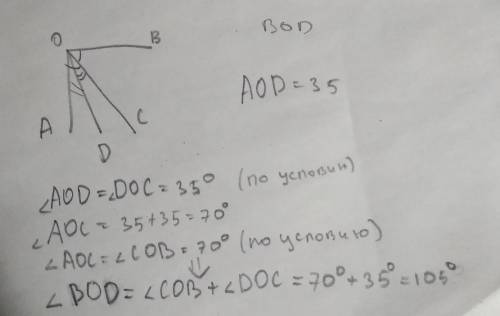 O B
BOD
A C
D
AOD = 35
∠AOD = ∠DOC = 35° (по условии)
∠AOC = 35+35 = 70°
∠AOC = ∠COB = 70° (по условию)
∠BOD = ∠COB + ∠DOC = 70° + 35° = 105°